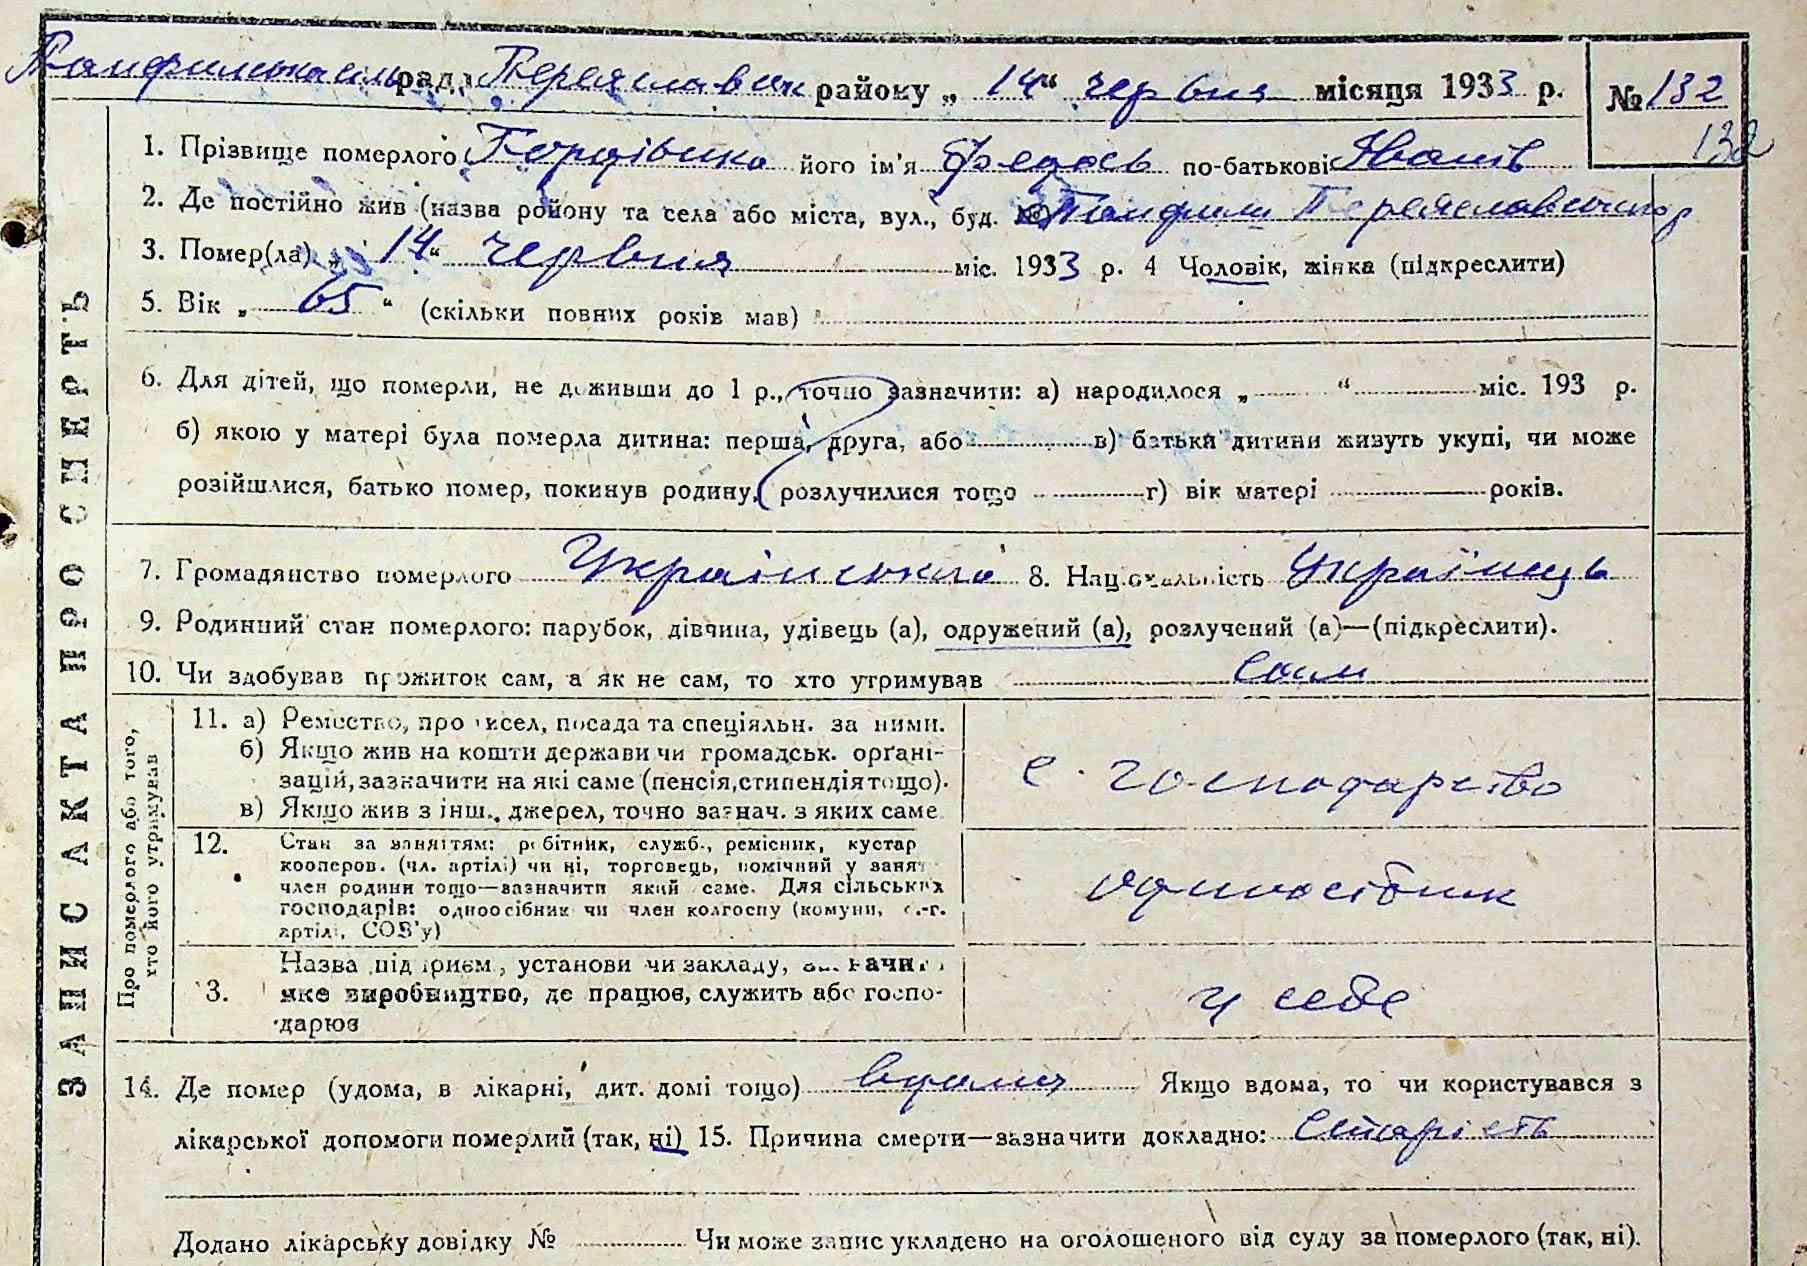 Панфилська сільрада Переяславськ району „14“ червня місяця 1933 р. № 132
132
1. Прізвище померлого його ім'я Федось по-батькові Іванів
2. Де постійно жив (назва району та села або міста, вул., буд. №) Панфили Переяславського р
3. Помер(ла) „14“ червня міс. 1933 р. 4 Чоловік, жінка (підкреслити)
5. Вік „65“ (скільки повних років мав)
6. Для дітей, що померли, не доживши до 1 р., точно зазначити: а) народилося „ “ міс. 193 р.
б) якою у матері була померла дитина: перша, друга, або в) батьки дитини живуть укупі, чи може
розійшлися, батько помер, покинув родину, розлучилися тощо г) вік матері років.
7. Громадянство померлого Українського 8. Національність Українець
9. Родинний стан померлого: парубок, дівчина, удівець (а), одружений (а), розлучений (а)—(підкреслити).
10. Чи здобував прожиток сам, а як не сам, то хто утримував сам
ЗАПИС АКТА ПРО СМЕРТЬ
Про померлого або того,
хто його утримував
11. а) Ремество, промисел, посада та спеціяльн. за ними.
б) Якщо жив на кошти держави чи громадськ. орґані-
зацій, зазначити на які саме (пенсія, стипендія тощо).
в) Якщо жив з інш. джерел, точно зазнач. з яких саме
с. господарство
12. Стан за заняттям: робітник, служб., ремісник, кустар
кооперов. (чл. артілі) чи ні, торговець, помічний у занят.
член родини тощо—зазначити який саме. Для сільських
господарів: одноосібник чи член колгоспу (комуни, с.-г.
артілі, СОЗ'у)
одноосібник
13. Назва підприєм., установи чи закладу, зазначит.
яке виробництво, де працює, служить або госпо-
дарює
у себе
14. Де помер (удома, в лікарні, дит. домі тощо) вдома Якщо вдома, то чи користувався з
лікарської допомоги померлий (так, ні) 15. Причина смерти—зазначити докладно: старість
Додано лікарську довідку № Чи може запис укладено на оголошеного від суду за померлого (так, ні).